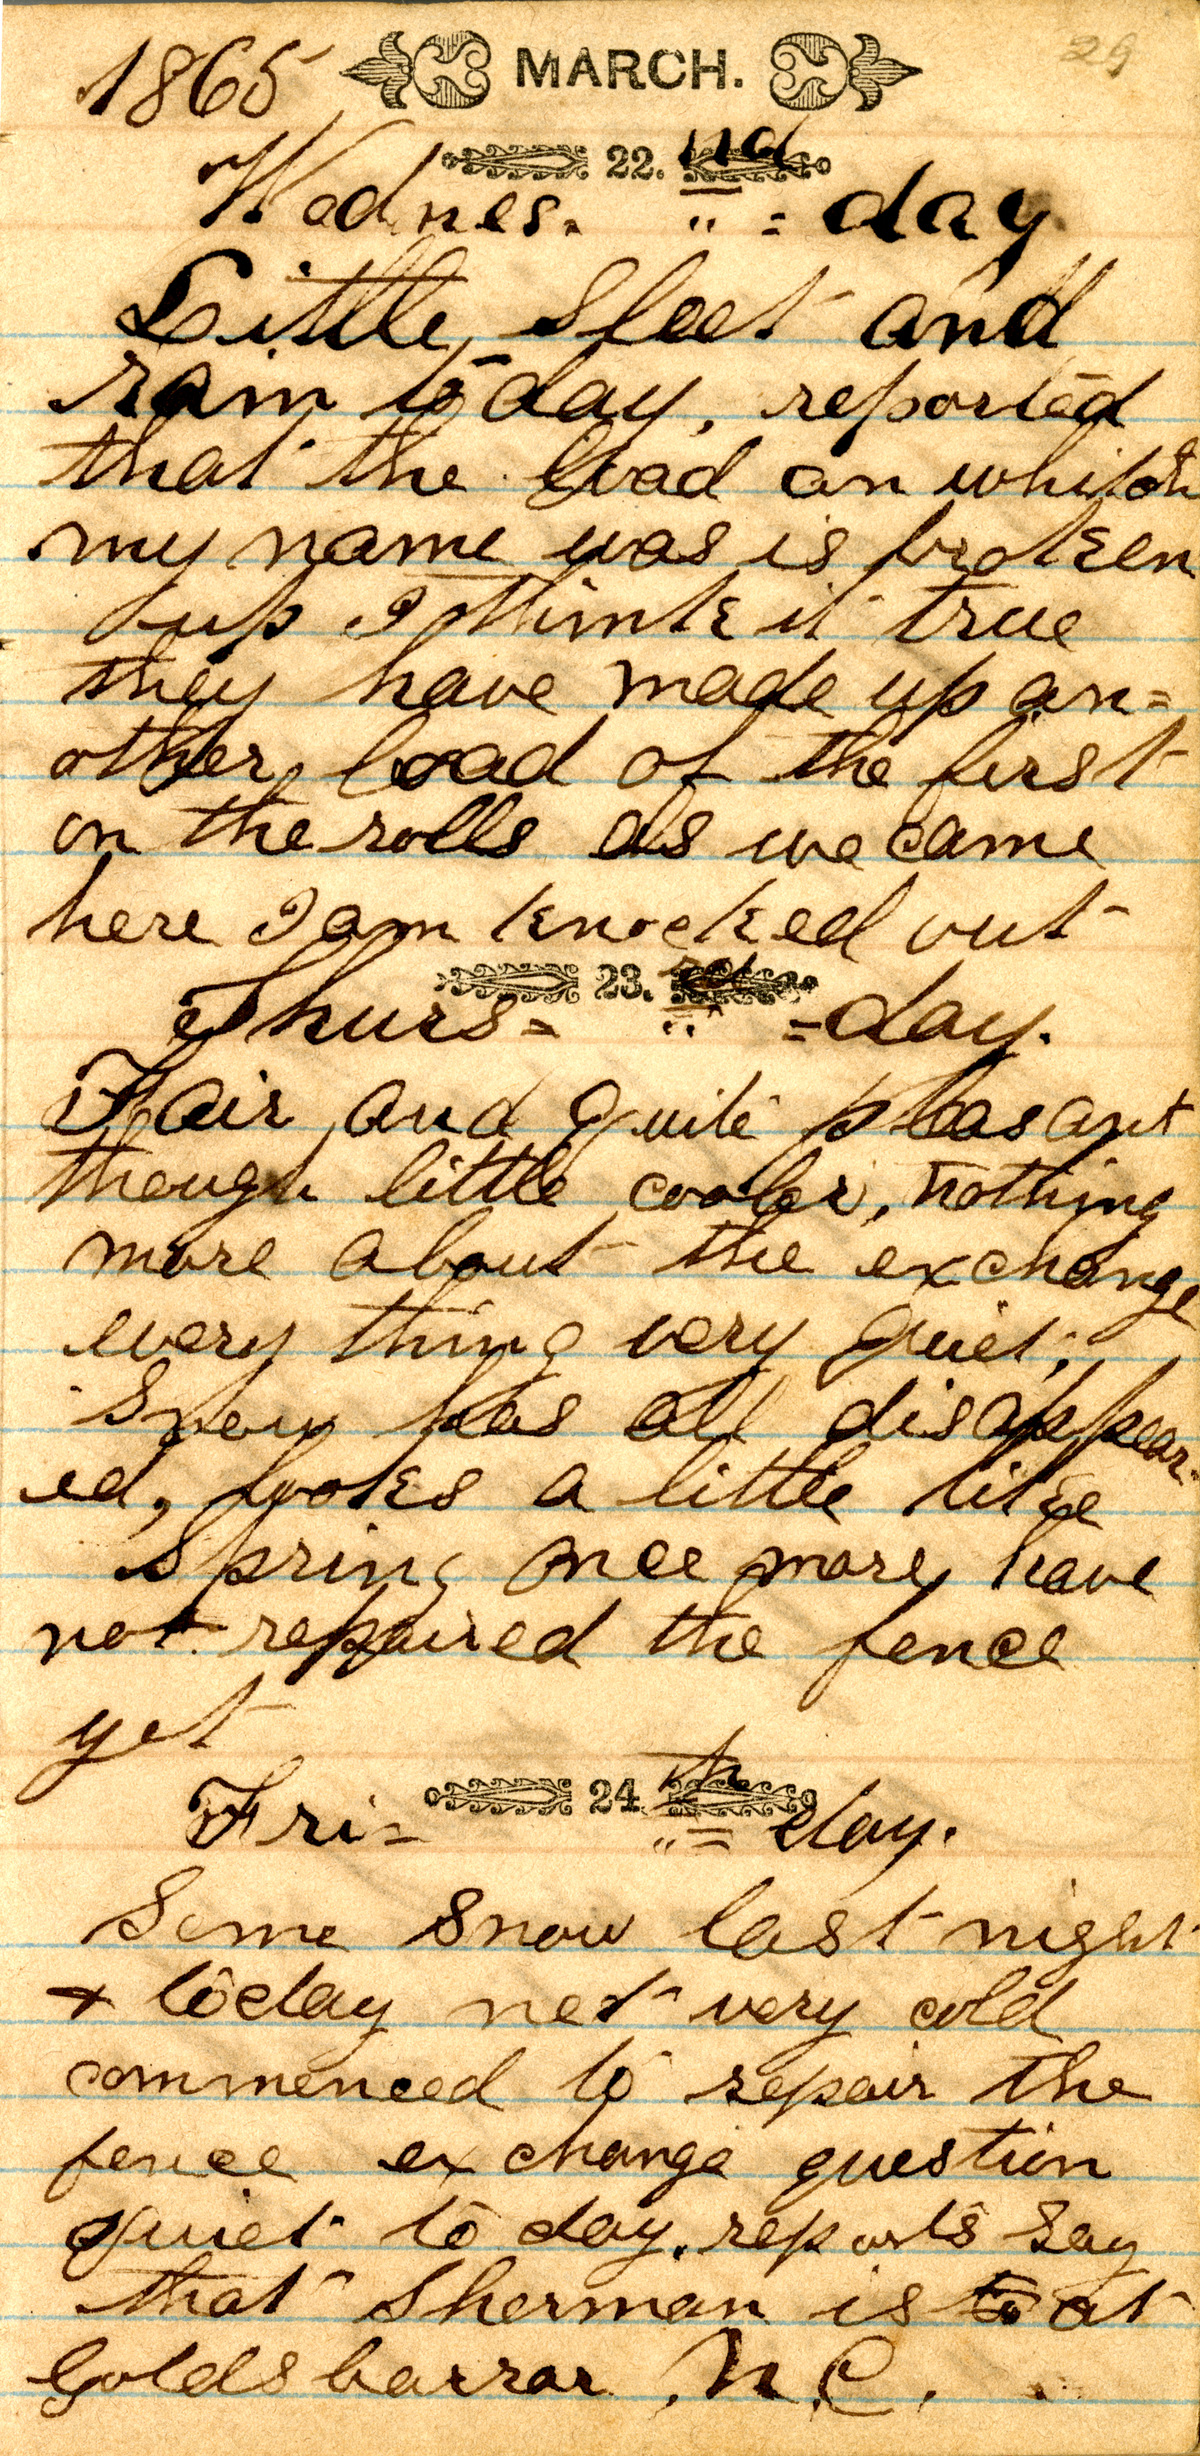 1865 MARCH. 29
22. nd
Wednes- " = day
Little sleet and
rain to-day, reported
that the load on which
my name was is broken
up I think it true
they have made up an=
other load of the first
on the rolls as we came
here I am knocked out
23. rd
Thurs- " =day.
Fair and quite pleasant
though little cooler, nothing
more about the exchange
every thing very quiet,
Snow has all disappear-
ed, looks a little like
Spring once more, have
not repaired the fence
yet
24. th
Fri- " = day.
Some snow last night
+ today not very cold
commenced to repair the
fence exchange question
quiet to day, reports say
that Sherman is to at
Goldsbarrar, N.C.